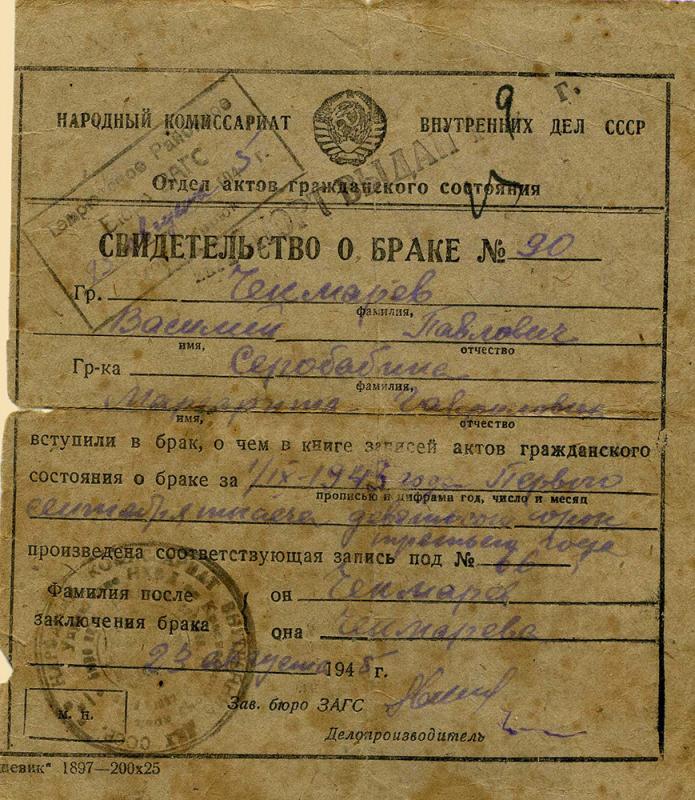 НАРОДНЫЙ КОМИССАРИАТ ВНУТРЕННИХ ДЕЛ СССР
Отдел актов гражданского состояния
СВИДЕТЕЛЬСТВО О БРАКЕ № 90
Гр. Чекмарев
фамилия,
Василий Павлович
имя, отчество
Гр-ка Серобабина
фамилия,
Маргарита Гавриловна
имя, отчество
вступили в брак, о чем в книге записей актов гражданского
состояния о браке за 1/IX-1943 года Первого
прописью и цифрами год, число и месяц
сентября тысяча девятьсот сорок
третьего года
произведена соответствующая запись под № 66
Фамилия после он Чекмарев
заключения брака она Чекмарева
23 августа 1945 г.
Зав. бюро ЗАГС
м. п.
Делопроизводитель
1897—200х25